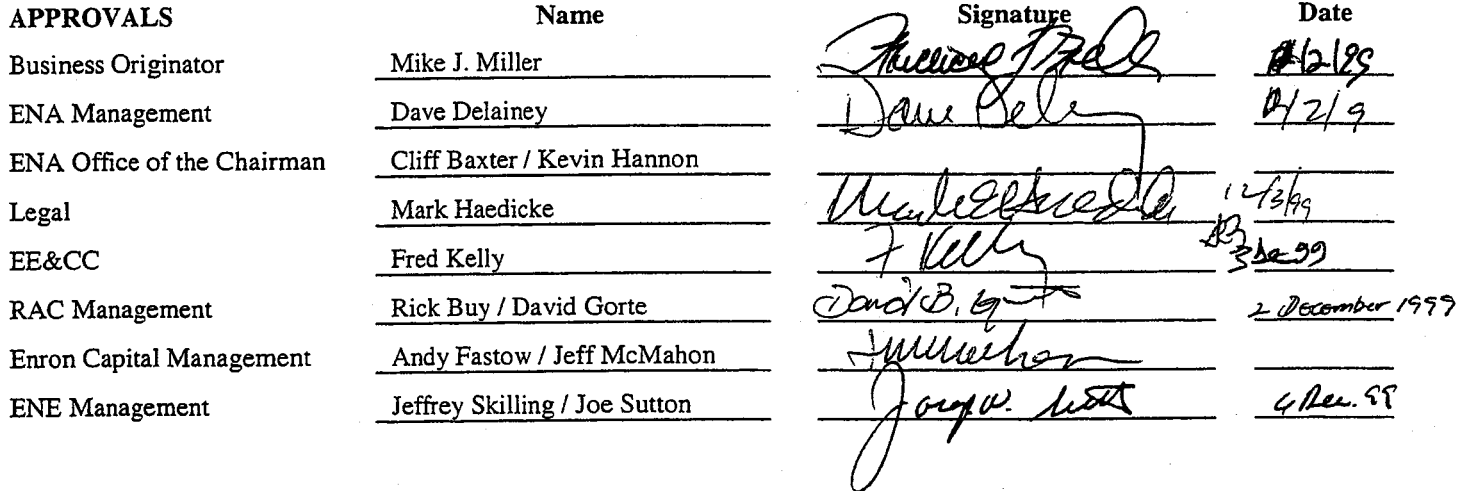 APPROVALS Name Signature Date
Business Originator Mike J. Miller 12/2/99
ENA Management Dave Delainey Dave Del 12/2/9
ENA Office of the Chairman Cliff Baxter / Kevin Hannon
Legal Mark Haedicke 12/3/99
EE&CC Fred Kelly F Kelly 3 Dec 99
RAC Management Rick Buy / David Gorte David B. 2 December 1999
Enron Capital Management Andy Fastow / Jeff McMahon
ENE Management Jeffrey Skilling / Joe Sutton Dec. 99